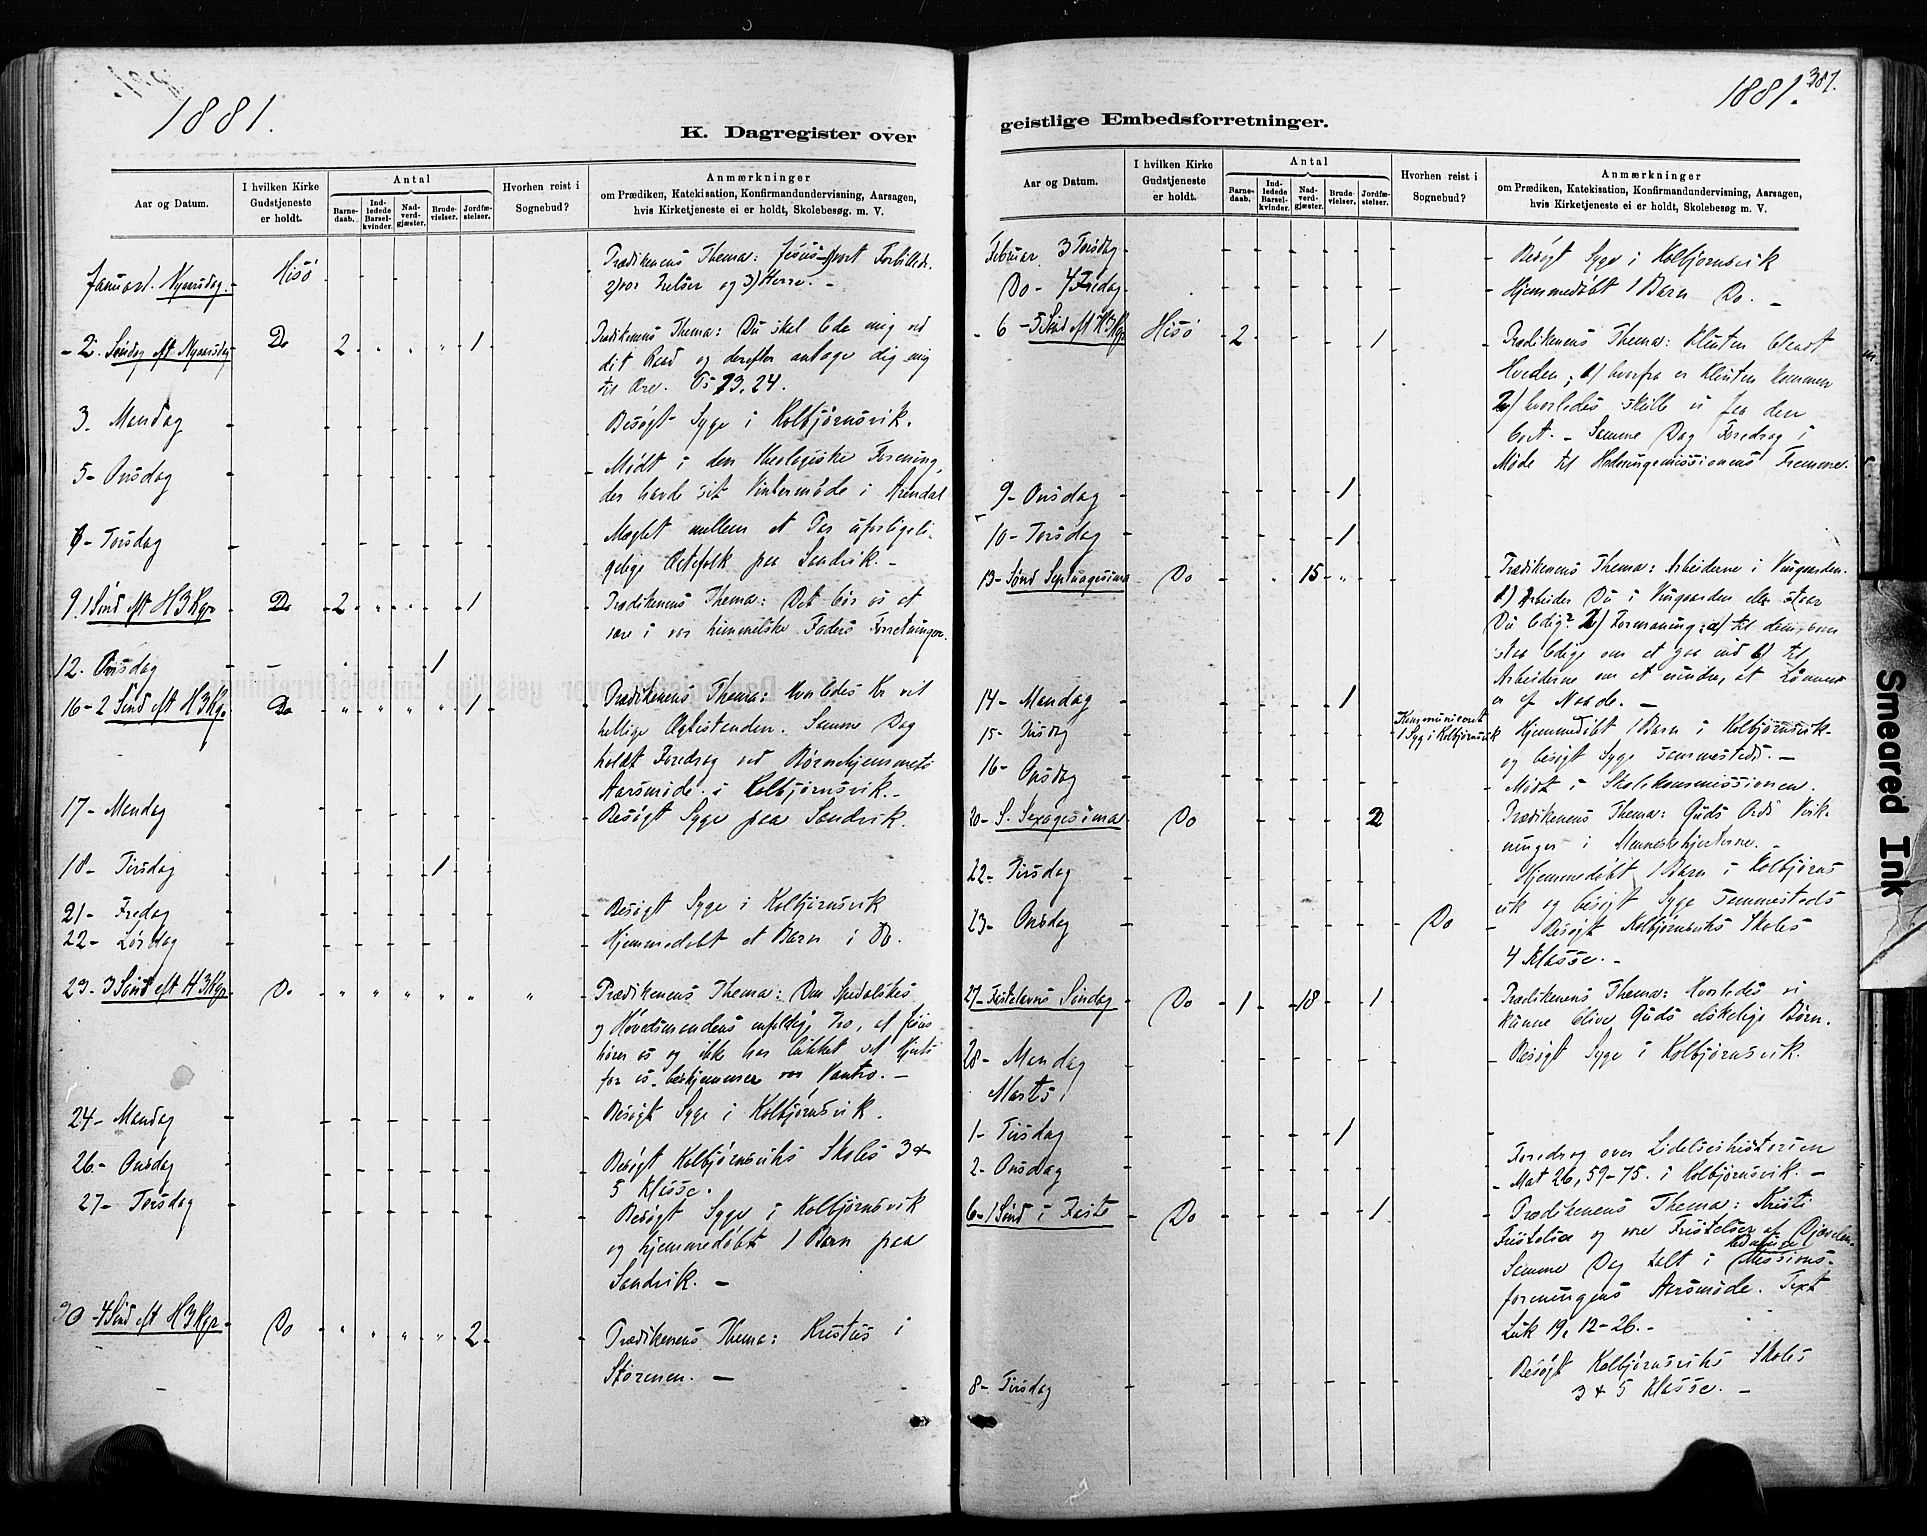 1881.
K. Dagregister over
Aar og Datum.
I hvilken Kirke Gudstjeneste er holdt.
Antal
Barne-daab.
Ind-ledede Barsel-kvinder.
Nad-verd-gjæster.
Brude-vielser.
Jordfæ-stelser.
Hvorhen reist i Sognebud?
Anmærkninger
om Prædiken, Katekisation, Konfirmandundervisning, Aarsagen,
hvis Kirketjeneste ei er holdt, Skolebesøg m. V.
Januar 1. Nyaarsdag. Hisö Prædikenens Thema: Jesus 1) vort Forbillede
2) vor Frelser og 3) Herre. -
- 2. Søndag eft Nyaarsdag Do 2 1 Prædikenens Thema: Du skal lede mig ved
dit Raad og derefter antage dig mig
til Ære. Ps 73,24.
3. Mandag Besøgt Syge i Kolbjørnsvik.
5- Onsdag Mødt i den theologiske Forening,
der havde sit Vintermøde i Arendal
6- Torsdag Mæglet mellem et Par uforlige-
gelige Ægtefolk paa Sandvik. -
9. 1 Sønd eft H3Kgr Do 2 1 Prædikenens Thema: Det bør os at
være i vor himmelske Faders Forretninger.
12. Onsdag 1
16- 2 Sønd eft H3Kgr Do 1 Prædikenens Thema: Hvorledes Kr vil
hellige Ægtestanden. Samme Dag
holdt Foredrag ved Børnehjemmets
Aarsmøde i Kolbjørnsvik. -
17- Mandag Besøgt Syge paa Sandvik.
18- Tirsdag 1
21- Fredag Besøgt Syge i Kolbjørnsvik
22- Lørdag Hjemmedøbt et Barn i Do.
23- 3 Sønd eft H3Kgr Do Prædikenens Thema: Den Spedalskes
og Høvedsmandens enfoldig Tro, at Jesus
hører os og ikke har lukket sit Hjerte
for os, beskjemmer vor Vantro. -
24- Mandag Besøgt Syge i Kolbjørnsvik.
26- Onsdag Besøgt Kolbjørnsviks Skoles 3 &
5 Klasse.
27- Torsdag Besøgt Syge i Kolbjørnsvik
og hjemmedøbt 1 Barn paa
Sandvik. -
30 - 4 Sønd eft H3Kgr Do 2 Prædikenens Thema: Kristus i
Stormen. -
1881. 387.
geistlige Embedsforretninger.
Aar og Datum.
I hvilken Kirke Gudstjeneste er holdt.
Antal
Barne-daab.
Ind-ledede Barsel-kvinder.
Nad-verd-gjæster.
Brude-vielser.
Jordfæ-stelser.
Hvorhen reist i Sognebud?
Anmærkninger
om Prædiken, Katekisation, Konfirmandundervisning, Aarsagen,
hvis Kirketjeneste ei er holdt, Skolebesøg m. V.
Februar 3 Torsdag Besøgt Syge i Kolbjørnsvik
Do - 4 Fredag Hjemmedøbt 1 Barn Do. -
- 6 - 5 Sønd eft H3Kgr Hisö 2 1 Prædikenens Thema: Klinten blandt
Hveden; 1) hvorfra er Klinten kommen
2) hvorledes skille vi den
bort. - Samme Dag Foredrag i
Møde til Hedningemissionens Fremme.
9- Onsdag 1
10- Torsdag 1
13- Sønd Septuagesima Do 15 Prædikenens Thema: Arbeiderne i Vingaarden.
1) Arbeider Du i Vingaarden eller staar
Du ledig? 2) Formaning: a) til dem, som
staa ledige om at gaa ind b) til
Arbeiderne om at mindes, at Lønnen
er af Naade. -
14- Mandag 1
15- Tirsdag Kommuniceret 1 Syg i Kolbjørnsvik Hjemmedøbt 1 Barn i Kolbjørnsvik
og besøgt Syge sammesteds. -
16- Onsdag Mødt i Skolekommissionen.
20- S. Sexagesima Do 2 Prædikenens Thema: Guds Ords Virk-
ninger i Menneskehjerterne. -
22- Tirsdag Hjemmedøbt 1 Barn i Kolbjørns
vik og besøgt Syge sammesteds
23- Onsdag Do Besøgt Kolbjørnsviks Skoles
4 Klasse. -
27- Fastelavns Søndag Do 1 18 1 Prædikenens Thema: Hvorledes vi
kunne blive Guds elskelige Børn.
28- Mandag Besøgt Syge i Kolbjørnsvik.
Marts
1- Tirsdag 1
2- Onsdag Foredrag over Lidelseshistorien
Mat 26, 59-75. i Kolbjørnsvik. -
6- 1 Sønd i Faste Do 1 Prædikenens Thema: Kristi
Fristelse og vore Fristelser af Djævelen.
Samme Dag talt i Missions-
foreningens Aarsmøde. Text
Luk 19, 12-26. -
8- Tirsdag Besøgt Kolbjørnsviks Skoles
3 & 5 Klasse. -
Smeared Ink